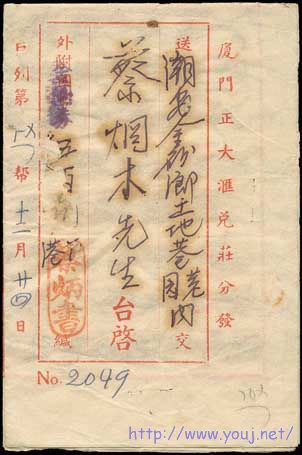 厦門正大滙兌莊分發
送 潮邑金砂鄉土地巷 园内 交
蔡烱木先生 台啓
外附 五百 港 緘
列第 帮 月廿四日
No. 2049
http://www.youj.net/